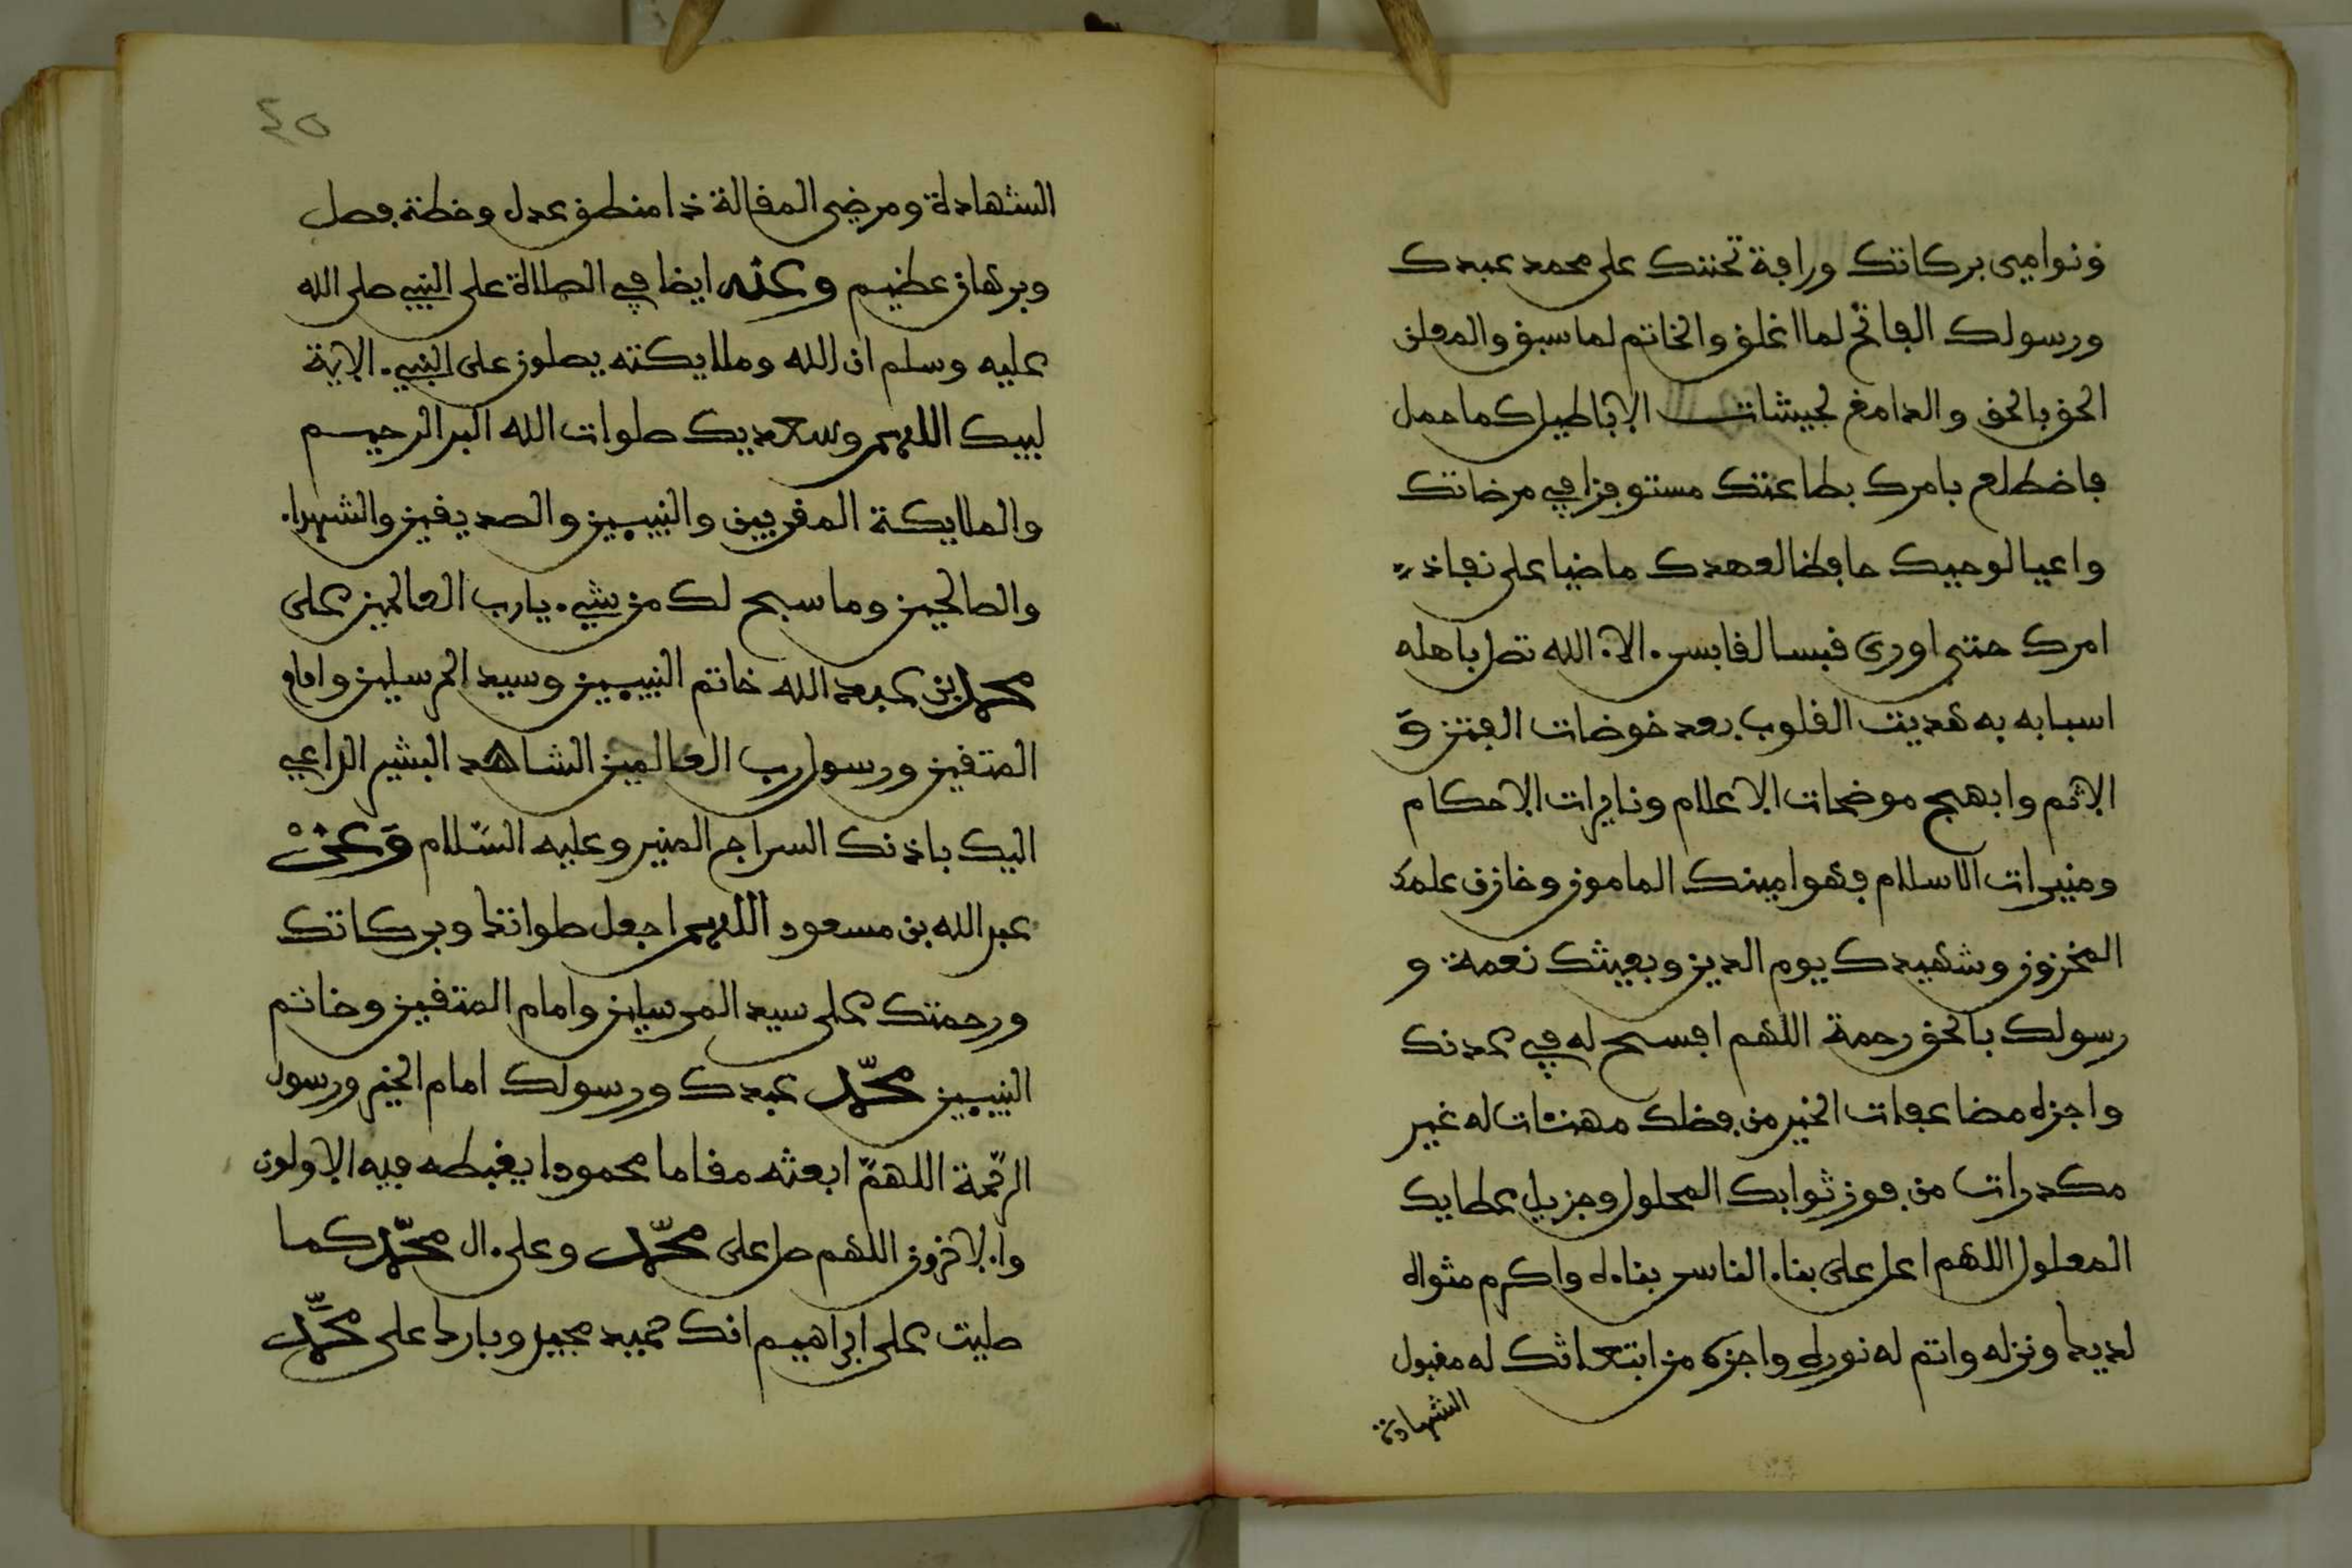 ونوامي بركاتك ورافة تحننك على محمد عبدك
ورسولك الفاتح لما اغلق والخاتم لما سبق والمعلن
الحق بالحق والدامغ لجيشات الاباطيل كما حمل
فاضطلع بامرك بطاعتك مستوفزا في مرضاتك
واعيا لوحيك حافظا لعهدك ماضيا على نفاذ
امرك حتى اورى قبسا لقابس الاء الله تصل باهله
اسبابه به هديت القلوب بعد خوضات الفتن و
الاثم وابهج موضحات الاعلام ونايرات الاحكام
ومنيرات الاسلام فهو امينك المامون وخازن علمك
المخزون وشهيدك يوم الدين وبعيثك نعمة و
رسولك بالحق رحمة اللهم افسح له في عدنك
واجزه مضاعفات الخير من فضلك مهنئات له غير
مكدرات من فوز ثوابك المحلول وجزيل عطايك
المعلول اللهم اعل على بناء الناس بناءه واكرم مثواه
لديك ونزله واتم له نوره واجزه من ابتعاثك له مقبول
الشهادة
٤٥
الشهادة ومرضي المقالة ذا منطق عدل وخطة فصل
وبرهان عظيم وعنه ايضا في الصلاة على النبي صلى الله
عليه وسلم ان الله وملايكته يصلون على النبي الاية
لبيك اللهم وسعديك صلوات الله البر الرحيم
والملايكة المقربين والنبيين والصديقين والشهداء
والصالحين وما سبح لك من شيء يا رب العالمين على
محمد بن عبد الله خاتم النبيين وسيد المرسلين وامام
المتقين ورسول رب العالمين الشاهد البشير الداعي
اليك باذنك السراج المنير وعليه السلام وعن
عبد الله بن مسعود اللهم اجعل صلواتك وبركاتك
ورحمتك على سيد المرسلين وامام المتقين وخاتم
النبيين محمد عبدك ورسولك امام الخير ورسول
الرحمة اللهم ابعثه مقاما محمودا يغبطه فيه الاولون
والاخرون اللهم صل على محمد وعلى ال محمد كما
صليت على ابراهيم انك حميد مجيد وبارك على محمد